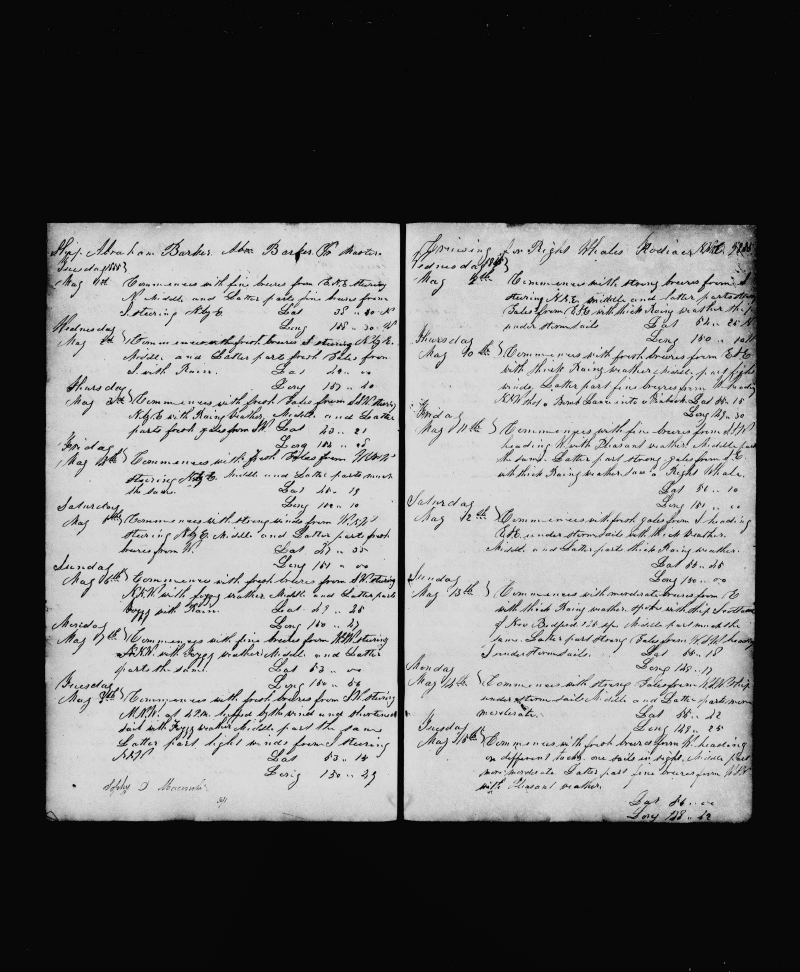 Ship Abraham Barker. Abm Barker Master
Tuesday
May 1st Commences with fine breezes from E.N.E steering
N. Middle and Latter parts fine breezes from
S. steering N.by E. Lat 38 .. 40 N
Wednesday Long 158 .. 30 W
May 2nd Commences with fresh breezes S steering N.by E.
Middle and Latter parts fresh Gales from
S. with Rain. Lat
Thursday Long 157 .. 20
May 3rd Commences with fresh Gales from S.W. steering
N.by E with Rainy Weather, Middle and Latter
parts fresh gales from W Lat 43 .. 21
Friday Long
May 4th Commences with fresh Gales from
steering N.by E. Middle and Latter parts much
the same. Lat 45 .. 19
Saturday Long
May 5th Commences with strong winds from
steering N.by E. Middle and Latter parts fresh
breezes from W. Lat 47 .. 35
Sunday Long 151 .. 00
May 6th Commences with fresh breezes from S.W. steering
N.N.W. with foggy weather Middle and Latter parts
foggy with Rain. Lat 49 .. 25
Monday Long 150 .. 27
May 7th Commences with fine breezes from W.S.W. steering
N.N.W. with Foggy weather Middle and Latter
parts the same. Lat 53 .. 00
Tuesday Long 150 .. 56
May 8th Commences with fresh breezes from S.W. steering
N.N.W. at 4 P.M. luffed by the wind and shortened
sail with Foggy weather Middle part the same
Latter part light winds from S steering
N.N.W Lat 53 .. 14
Long 150 .. 29
Cruising for Right Whales Kodiack
Wednesday
May 9th Commences with strong breezes from S
steering N.N.E. middle and latter parts strong
Gales from E.S.E with thick Rainy weather ship
under storm sails Lat 54 .. 25 N
Thursday Long 150 .. 10 W
May 10th Commences with fresh breezes from E.S.E
with thick Rainy weather Middle part light
winds, Latter part fine breezes from W. heading
N.N.W Lat 55 .. 15
Friday Long 149 .. 30
May 11th Commences with fine breezes from
heading N. with Pleasant weather. Middle part
the same. Latter part strong gales from S.E.
with thick Rainy weather saw a Right Whale.
Lat 56 .. 10
Saturday Long 151 .. 00
May 12th Commences with fresh gales from S. heading
under storm sails with thick Weather.
Middle and Latter parts thick Rainy weather.
Lat 55 .. 25
Sunday Long 150 .. 00
May 13th Commences with moderate breezes from E
with thick Rainy weather. spoke with ship
of New Bedford Middle part much the
same. Latter part strong Gales from W.S.W. heading
S under storm sails. Lat 55 .. 18
Monday Long 149 .. 17
May 14th Commences with strong Gales from W.S.W ship
under storm sails Middle and Latter parts more
moderate. Lat 55 .. 22
Tuesday Long 149 .. 25
May 15th Commences with fresh breezes from W. heading
on different tacks. one sail in sight, Middle part
more moderate. Latter part fine breezes from
with Pleasant weather.
Lat 56 .. 00
Long 148 .. 42